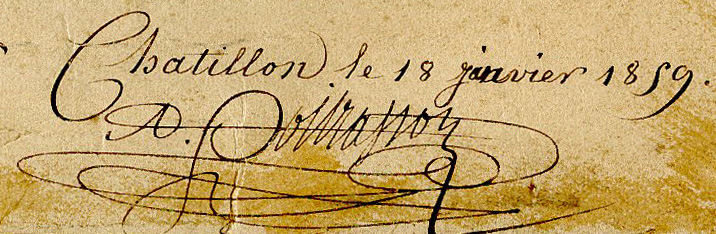 Chatillon le 18 janvier 1859.
A. Poitrasson